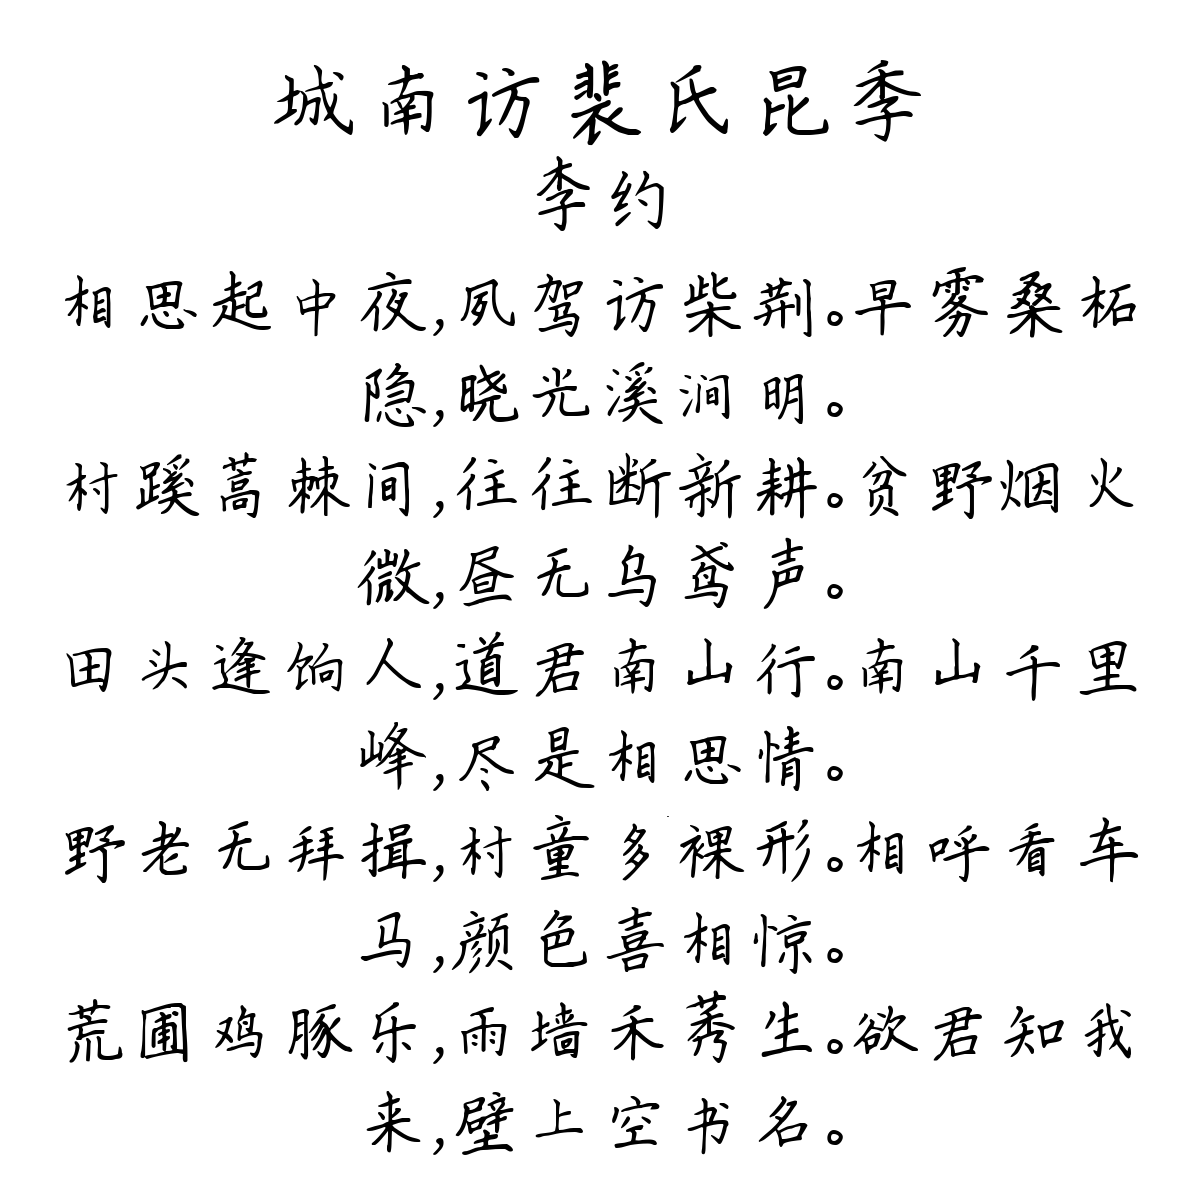 城南访裴氏昆季
李约
相思起中夜,夙驾访柴荆。早雾桑柘
隐,晓光溪涧明。
村蹊蒿棘间,往往断新耕。贫野烟火
微,昼无乌鸢声。
田头逢饷人,道君南山行。南山千里
峰,尽是相思情。
野老无拜揖,村童多裸形。相呼看车
马,颜色喜相惊。
荒圃鸡豚乐,雨墙禾莠生。欲君知我
来,壁上空书名。